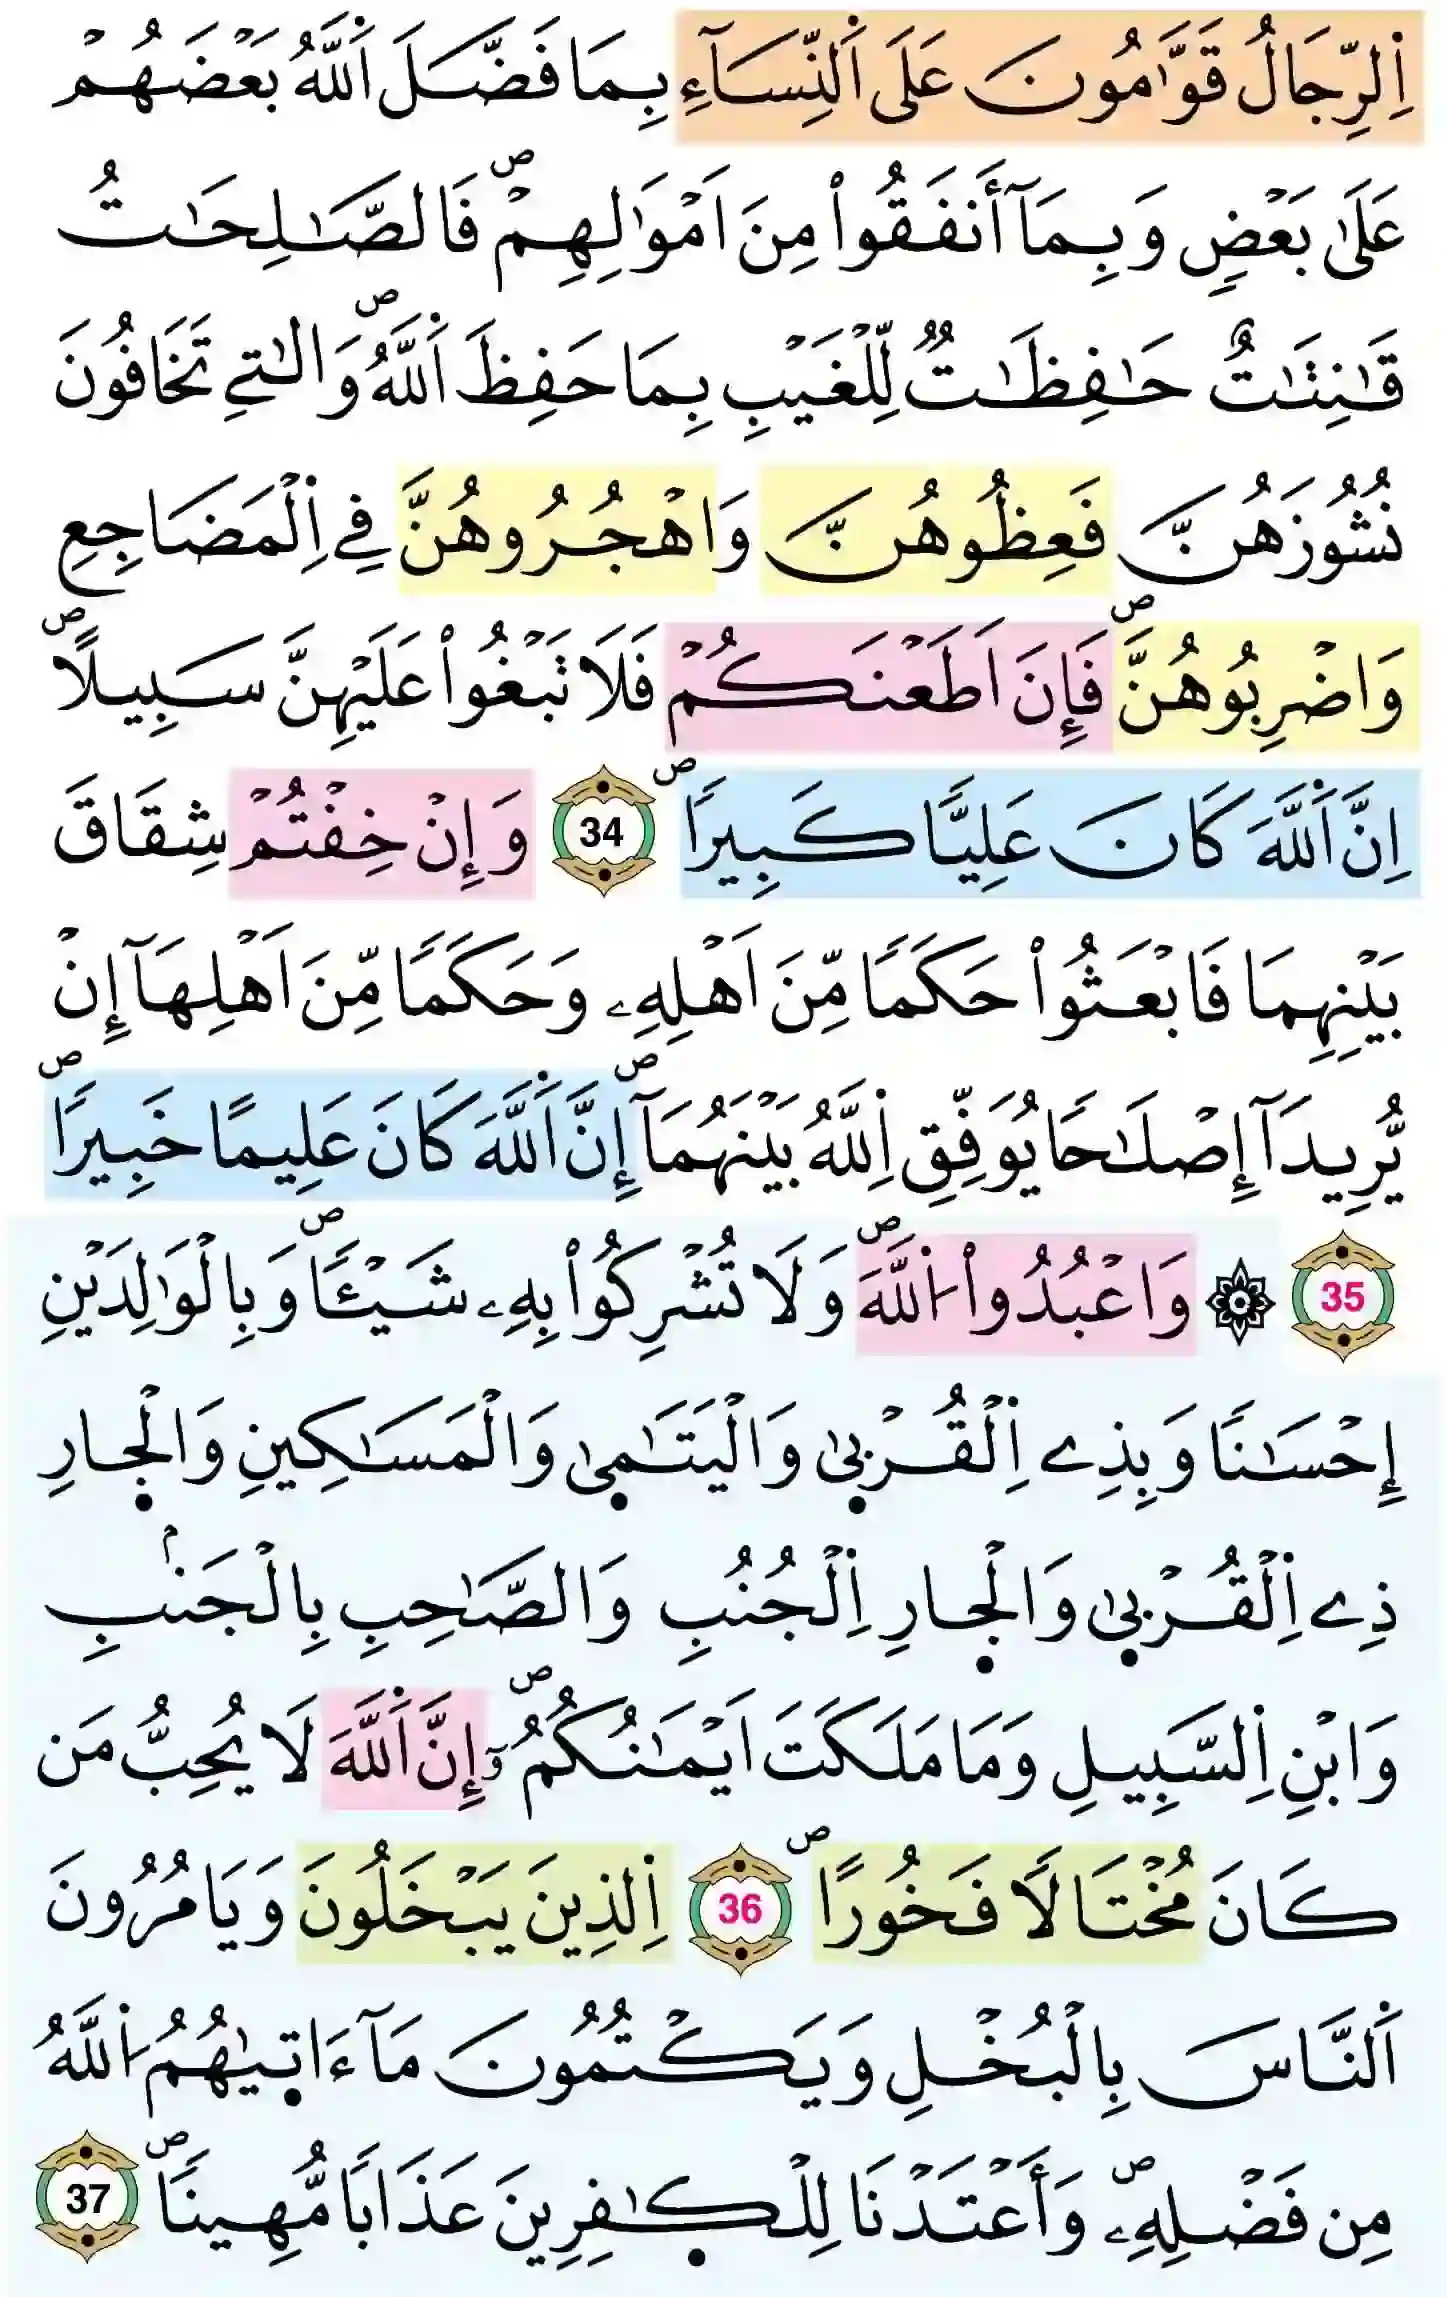 اِ۬لرِّجَالُ قَوَّٰمُونَ عَلَى اَ۬لنِّسَآءِ بِمَا فَضَّلَ اَ۬للَّهُ بَعْضَهُمْ
عَلَىٰ بَعْضٖ وَبِمَآ أَنفَقُواْ مِنَ اَمْوَٰلِهِمْۖ فَالصَّٰلِحَٰتُ
قَٰنِتَٰتٌ حَٰفِظَٰتٞ لِّلْغَيْبِ بِمَا حَفِظَ اَ۬للَّهُۖ وَالَٰتِے تَخَافُونَ
نُشُوزَهُنَّ فَعِظُوهُنَّ وَاهْجُرُوهُنَّ فِے اِ۬لْمَضَاجِعِ
وَاضْرِبُوهُنَّۖ فَإِنَ اَطَعْنَكُمْ فَلَا تَبْغُواْ عَلَيْهِنَّ سَبِيلًاۖ
اِنَّ اَ۬للَّهَ كَانَ عَلِيّٗا كَبِيرٗاۖ 34 وَإِنْ خِفْتُمْ شِقَاقَ
بَيْنِهِمَا فَابْعَثُواْ حَكَمٗا مِّنَ اَهْلِهِۦ وَحَكَمٗا مِّنَ اَهْلِهَآ إِنْ
يُّرِيدَآ إِصْلَٰحٗا يُوَفِّقِ اِ۬للَّهُ بَيْنَهُمَآۖ إِنَّ اَ۬للَّهَ كَانَ عَلِيمًا خَبِيرٗاۖ
35 ۞ وَاعْبُدُواْ اُ۬للَّهَۖ وَلَا تُشْرِكُواْ بِهِۦ شَيْـٔٗاۖ وَبِالْوَٰلِدَيْنِ
إِحْسَٰنٗا وَبِذِے اِ۬لْقُرْبۭيٰ وَالْيَتَٰمۭيٰ وَالْمَسَٰكِينِ وَالْجۭارِ
ذِے اِ۬لْقُرْبۭيٰ وَالْجۭارِ اِ۬لْجُنُبِ وَالصَّٰحِبِ بِالْجَنۢبِ
وَابْنِ اِ۬لسَّبِيلِ وَمَا مَلَكَتَ اَيْمَٰنُكُمُۥٓۖ إِنَّ اَ۬للَّهَ لَا يُحِبُّ مَن
كَانَ مُخْتَالٗا فَخُورًاۖ 36 اِ۬لذِينَ يَبْخَلُونَ وَيَامُرُونَ
اَ۬لنَّاسَ بِالْبُخْلِ وَيَكْتُمُونَ مَآ ءَاتۭيٰهُمُ اُ۬للَّهُ
مِن فَضْلِهِۦۖ وَأَعْتَدْنَا لِلْكٰۭفِرِينَ عَذَابٗا مُّهِينٗاۖ 37